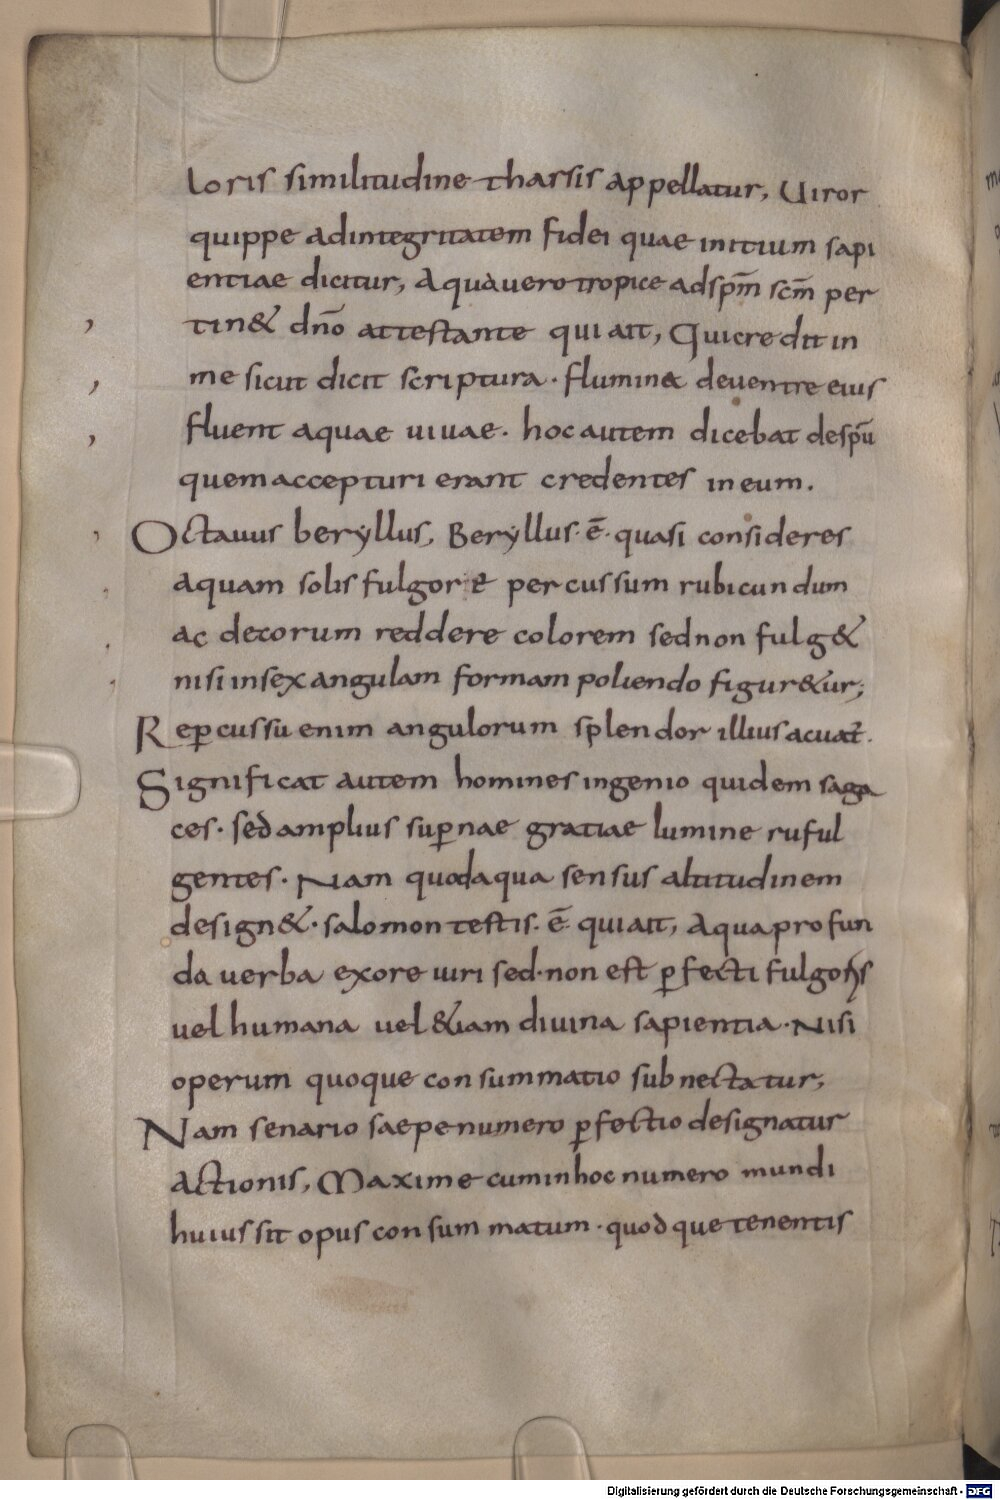 loris similitudine tharsis appellatur, Uiror
quippe ad integritatem fidei quae initium sapi
entiae dicitur, Aqua uero tropice ad sp̄m sc̄m per
tin& dn̄o attestante qui ait, Qui credit in
me sicut dicit scriptura · flumina de uentre eius
fluent aquae uiuae · hoc autem dicebat de spū
quem accepturi erant credentes in eum.
Octauus beryllus, Beryllus · ē · quasi consideres
aquam solis fulgore percussum rubicundum
ac decorum reddere colorem sed non fulg&
nisi in sexangulam formam poliendo figur&ur;
Reꝑcussu enim angulorum splendor illius acuat̄.
Significat autem homines ingenio quidem saga
ces · sed amplius suꝑnae gratiae lumine ruful
gentes · Nam quod aqua sensus altitudinem
design& · salomon testis · ē qui ait, Aqua profun
da uerba ex ore uiri sed · non est ꝑfecti fulgoris
uel humana uel &iam diuina sapientia · Nisi
operum quoque consummatio subnectatur;
Nam senario saepe numero ꝑfectio designatur
actionis, Maxime cum in hoc numero mundi
huius sit opus consummatum · quodque tenentis
Digitalisierung gefördert durch die Deutsche Forschungsgemeinschaft · DFG